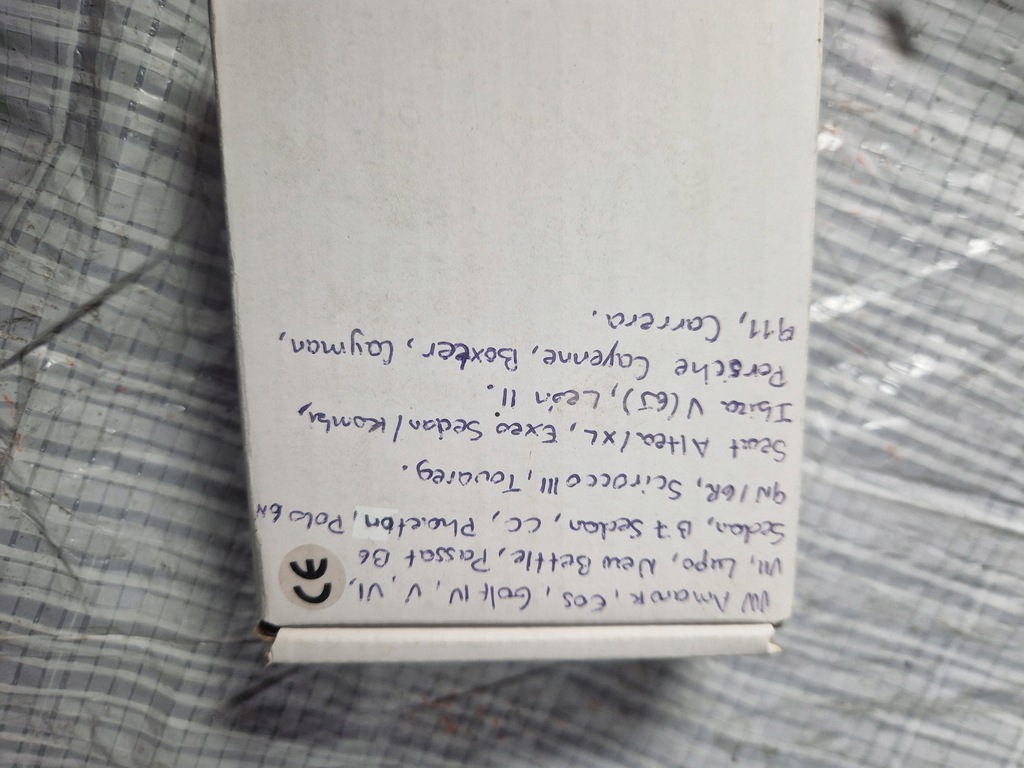 VW Amarok, Eos, Golf IV, V, VI,
VII, Lupo, New Bettle, Passat B6
Sedan, B7 Sedan, CC, Phaeton, Polo 6N
9N/6R, Scirocco III, Touareg.
Seat Altea/XL, Exeo Sedan/Kombi,
Ibiza V(6J), León II.
Porsche Cayenne, Boxter, Cayman,
911, Carrera.
CE